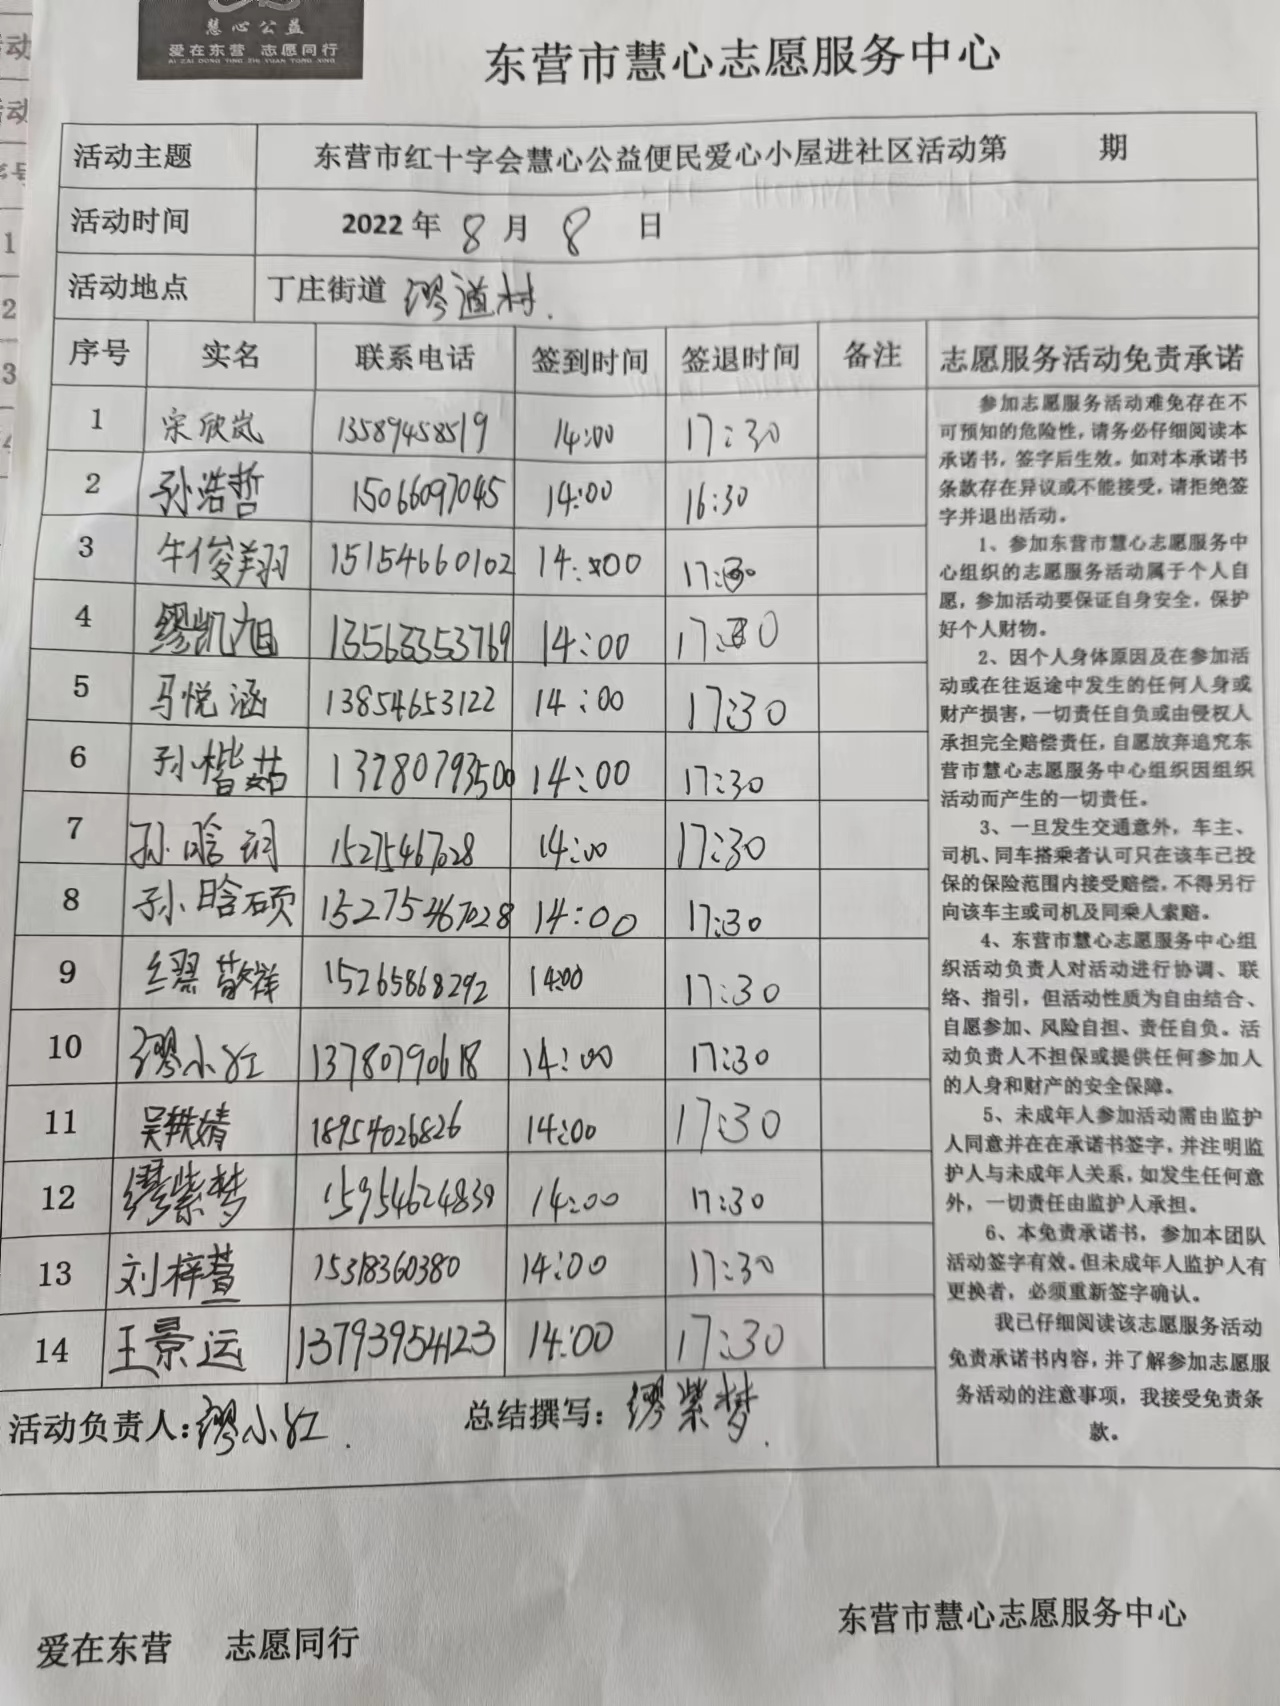 慧心公益
爱在东营 志愿同行
AI ZAI DONG YING ZHI YUAN TONG XING
东营市慧心志愿服务中心
活动主题 东营市红十字会慧心公益便民爱心小屋进社区活动第 期
活动时间 2022年 8 月 8 日
活动地点 丁庄街道 缪道村.
序号 实名 联系电话 签到时间 签退时间 备注
1 宋欣岚 13589458519 14:00 17:30
2 孙浩哲 15066097045 14:00 16:30
3 牛俊翔 15154660102 14:00 17:30
4 缪凯旭 13563353769 14:00 17:30
5 马悦涵 13854653122 14:00 17:30
6 孙楷茹 13780793500 14:00 17:30
7 孙晗 15275467028 14:00 17:30
8 孙晗硕 15275467028 14:00 17:30
9 缪敬祥 15265868292 14:00 17:30
10 缪小红 13780790618 14:00 17:30
11 吴轶婧 18954026826 14:00 17:30
12 缪紫梦 15954624839 14:00 17:30
13 刘梓萱 15318360380 14:00 17:30
14 王景运 13793954123 14:00 17:30
活动负责人:缪小红. 总结撰写:缪紫梦.
志愿服务活动免责承诺
参加志愿服务活动难免存在不
可预知的危险性,请务必仔细阅读本
承诺书,签字后生效。如对本承诺书
条款存在异议或不能接受,请拒绝签
字并退出活动。
1、参加东营市慧心志愿服务中
心组织的志愿服务活动属于个人自
愿,参加活动要保证自身安全,保护
好个人财物。
2、因个人身体原因及在参加活
动或在往返途中发生的任何人身或
财产损害,一切责任自负或由侵权人
承担完全赔偿责任,自愿放弃追究东
营市慧心志愿服务中心组织因组织
活动而产生的一切责任。
3、一旦发生交通意外,车主、
司机、同车搭乘者认可只在该车已投
保的保险范围内接受赔偿,不得另行
向该车主或司机及同乘人索赔。
4、东营市慧心志愿服务中心组
织活动负责人对活动进行协调、联
络、指引,但活动性质为自由结合、
自愿参加、风险自担、责任自负。活
动负责人不担保或提供任何参加人
的人身和财产的安全保障。
5、未成年人参加活动需由监护
人同意并在在承诺书签字,并注明监
护人与未成年人关系,如发生任何意
外,一切责任由监护人承担。
6、本免责承诺书,参加本团队
活动签字有效。但未成年人监护人有
更换者,必须重新签字确认。
我已仔细阅读该志愿服务活动
免责承诺书内容,并了解参加志愿服
务活动的注意事项,我接受免责条
款。
东营市慧心志愿服务中心
爱在东营 志愿同行